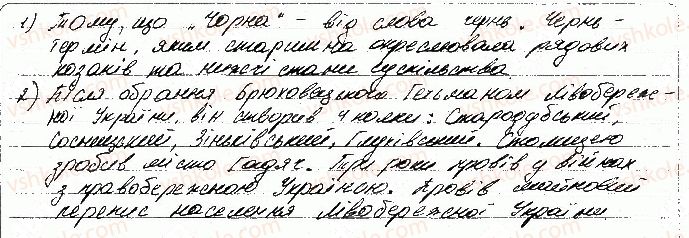 1) Тому, що „Чорна“ - від слова чернь. Чернь -
термін, яким старшина окреслювала рядових
козаків та нижчі стани суспільства
2) Після обрання Брюховецького Гетьманом Лівобереж-
ної України, він створив 4 полки: Стародубський,
Сосницький, Зіньківський, Глухівський. Столицею
зробив місто Гадяч. Три роки провів у війнах
з правобережною Україною. Провів майновий
перепис населення Лівобережної України